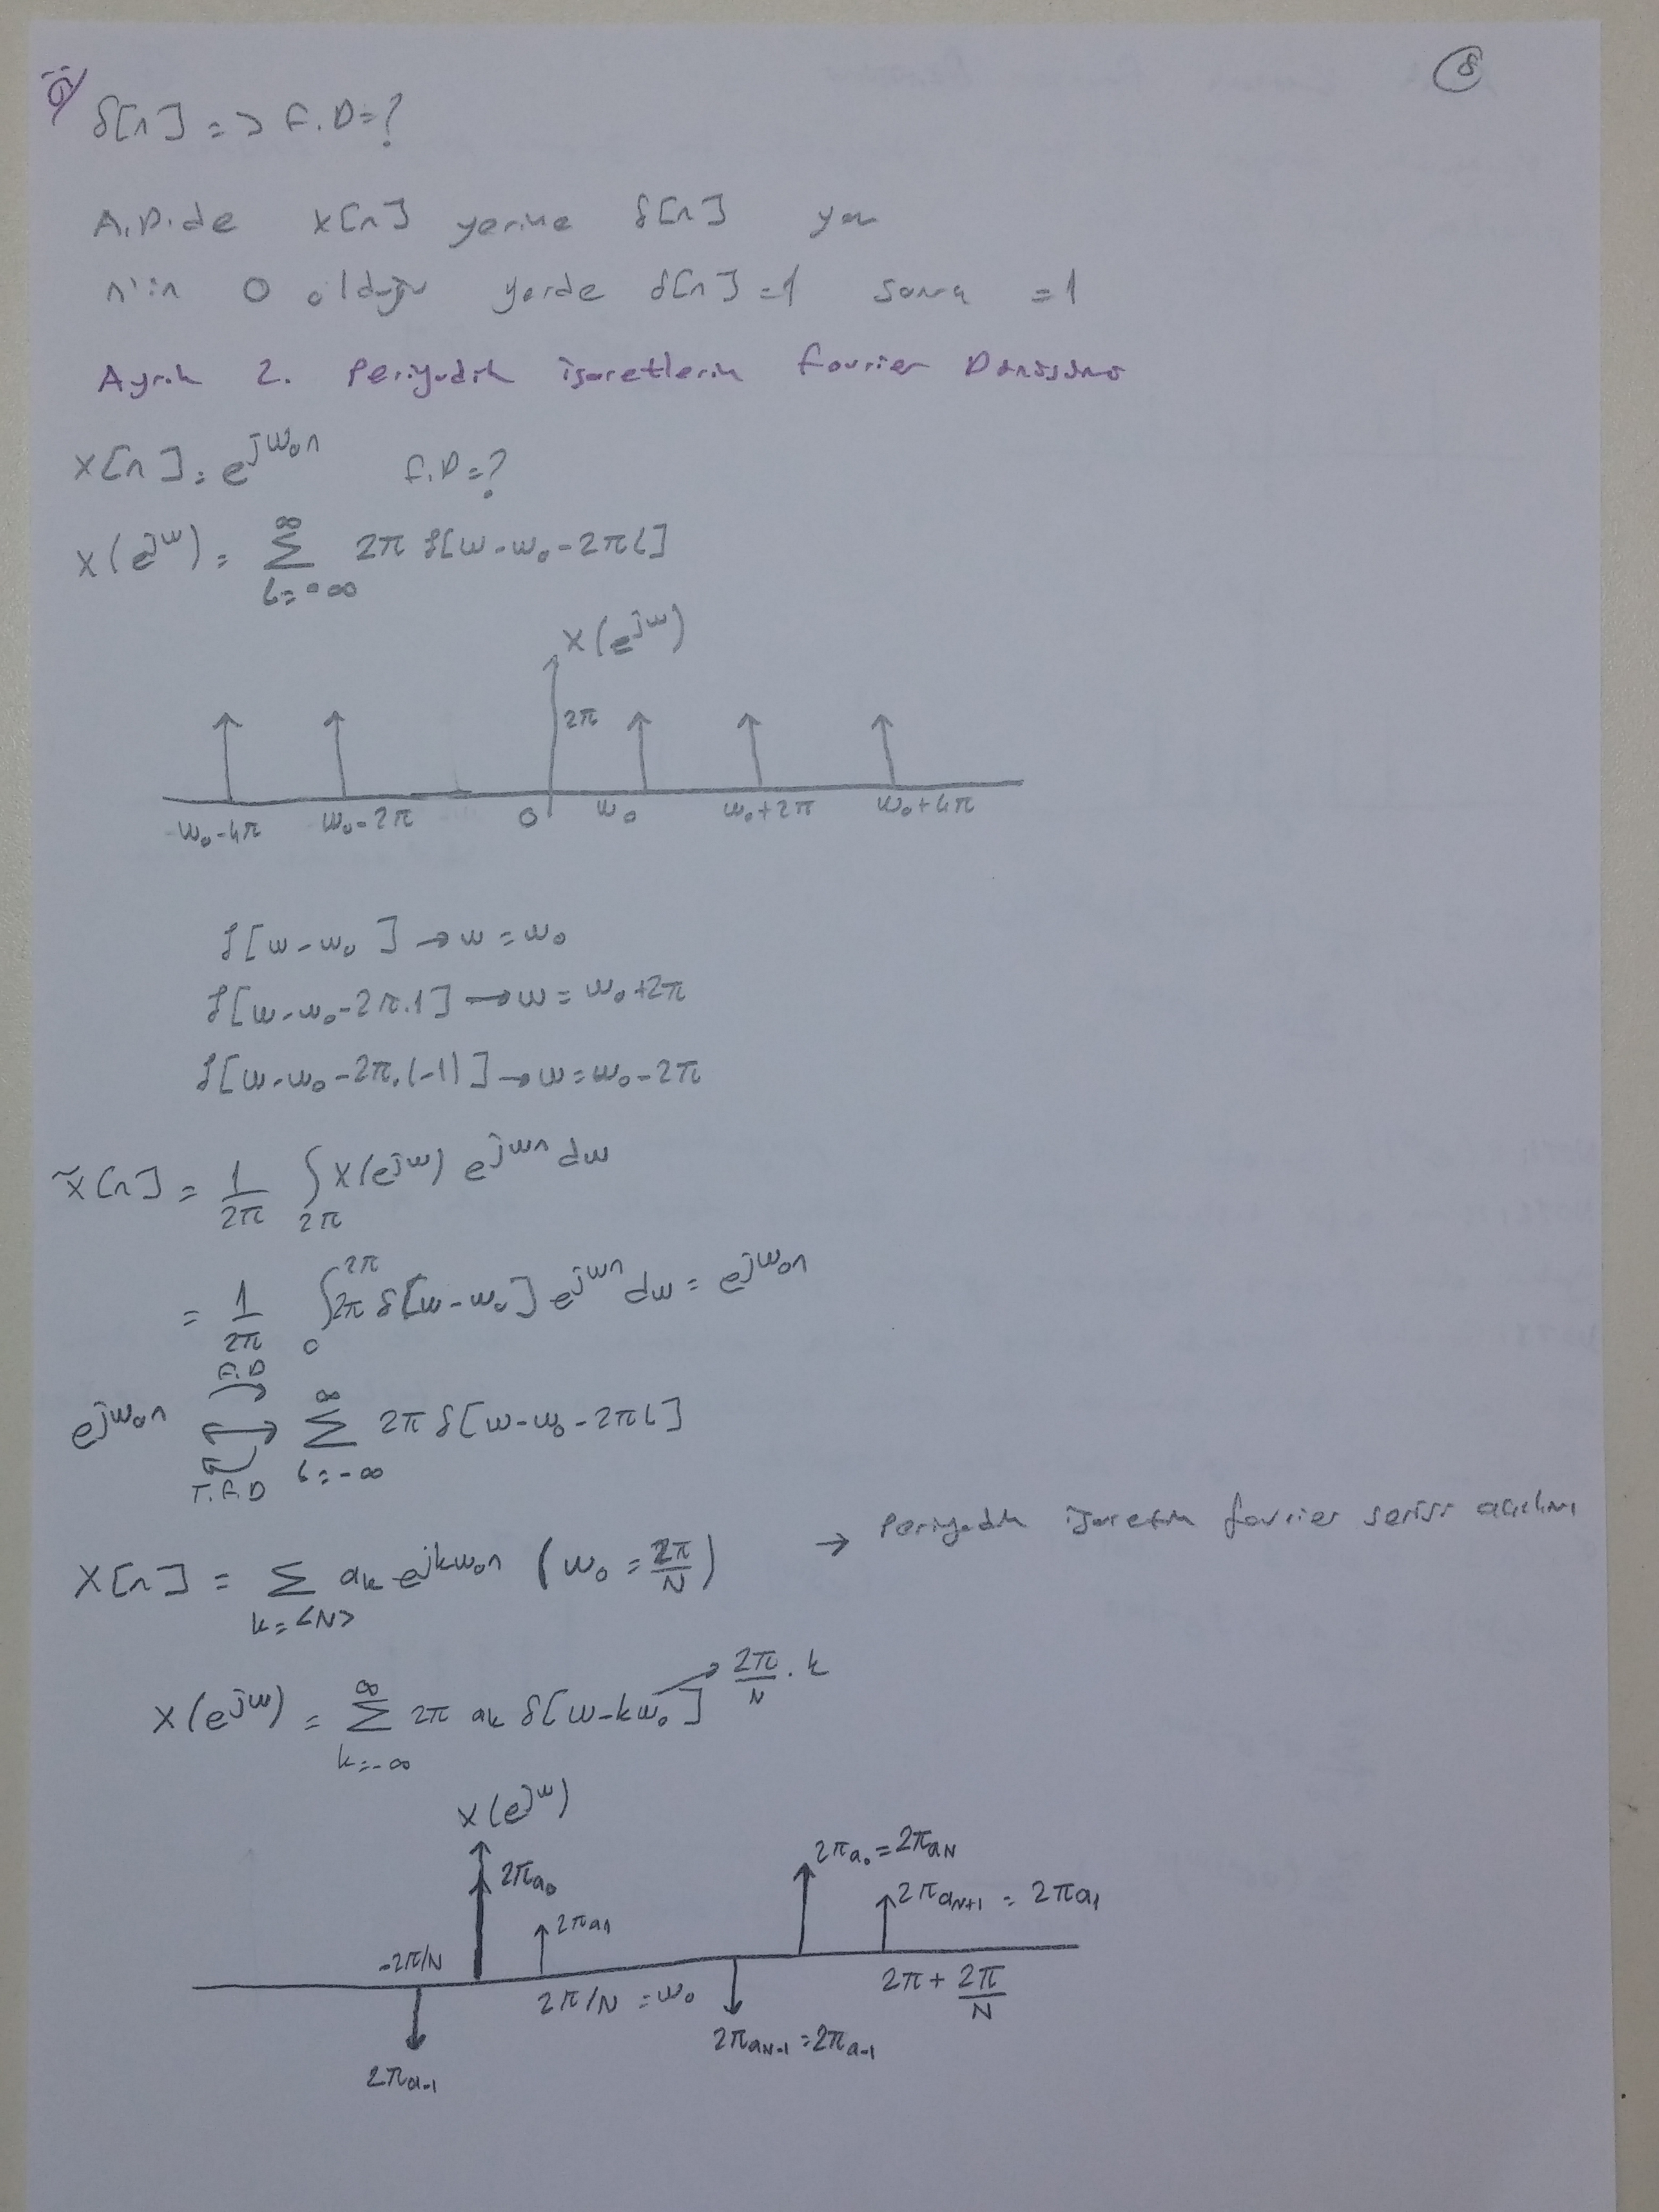 8
Ö/
δ[n] => F.D=?
A.D.de x[n] yerine δ[n] yaz
n'in 0 olduğu yerde δ[n]=1 sonra =1
Ayrık Z. Periyodik işaretlerin Fourier Dönüşümü
x[n]=e^{jω₀n} F.D=?
X(e^{jω}) = Σ_{l=-∞}^{∞} 2π δ[ω-ω₀-2πl]
X(e^{jω})
2π
ω₀-4π ω₀-2π 0 ω₀ ω₀+2π ω₀+4π
δ[ω-ω₀] → ω=ω₀
δ[ω-ω₀-2π.1] → ω=ω₀+2π
δ[ω-ω₀-2π.(-1)] → ω=ω₀-2π
x̃[n] = 1/2π ∫_{2π} X(e^{jω}) e^{jωn} dω
= 1/2π ∫_{0}^{2π} 2π δ[ω-ω₀] e^{jωn} dω = e^{jω₀n}
F.D
e^{jω₀n} ↔ Σ_{l=-∞}^{∞} 2π δ[ω-ω₀-2πl]
T.F.D
x[n] = Σ_{k=<N>} a_k e^{jkω₀n} (ω₀=2π/N) → Periyodik işaretin fourier serisi açılımı
X(e^{jω}) = Σ_{k=-∞}^{∞} 2π a_k δ[ω-kω₀] → 2π/N . k
X(e^{jω})
2πa₀ 2πa₁ 2πa₀=2πa_N 2πa_{N+1} = 2πa₁
-2π/N 2π/N = ω₀ 2π + 2π/N
2πa₋₁ 2πa_{N-1} = 2πa₋₁